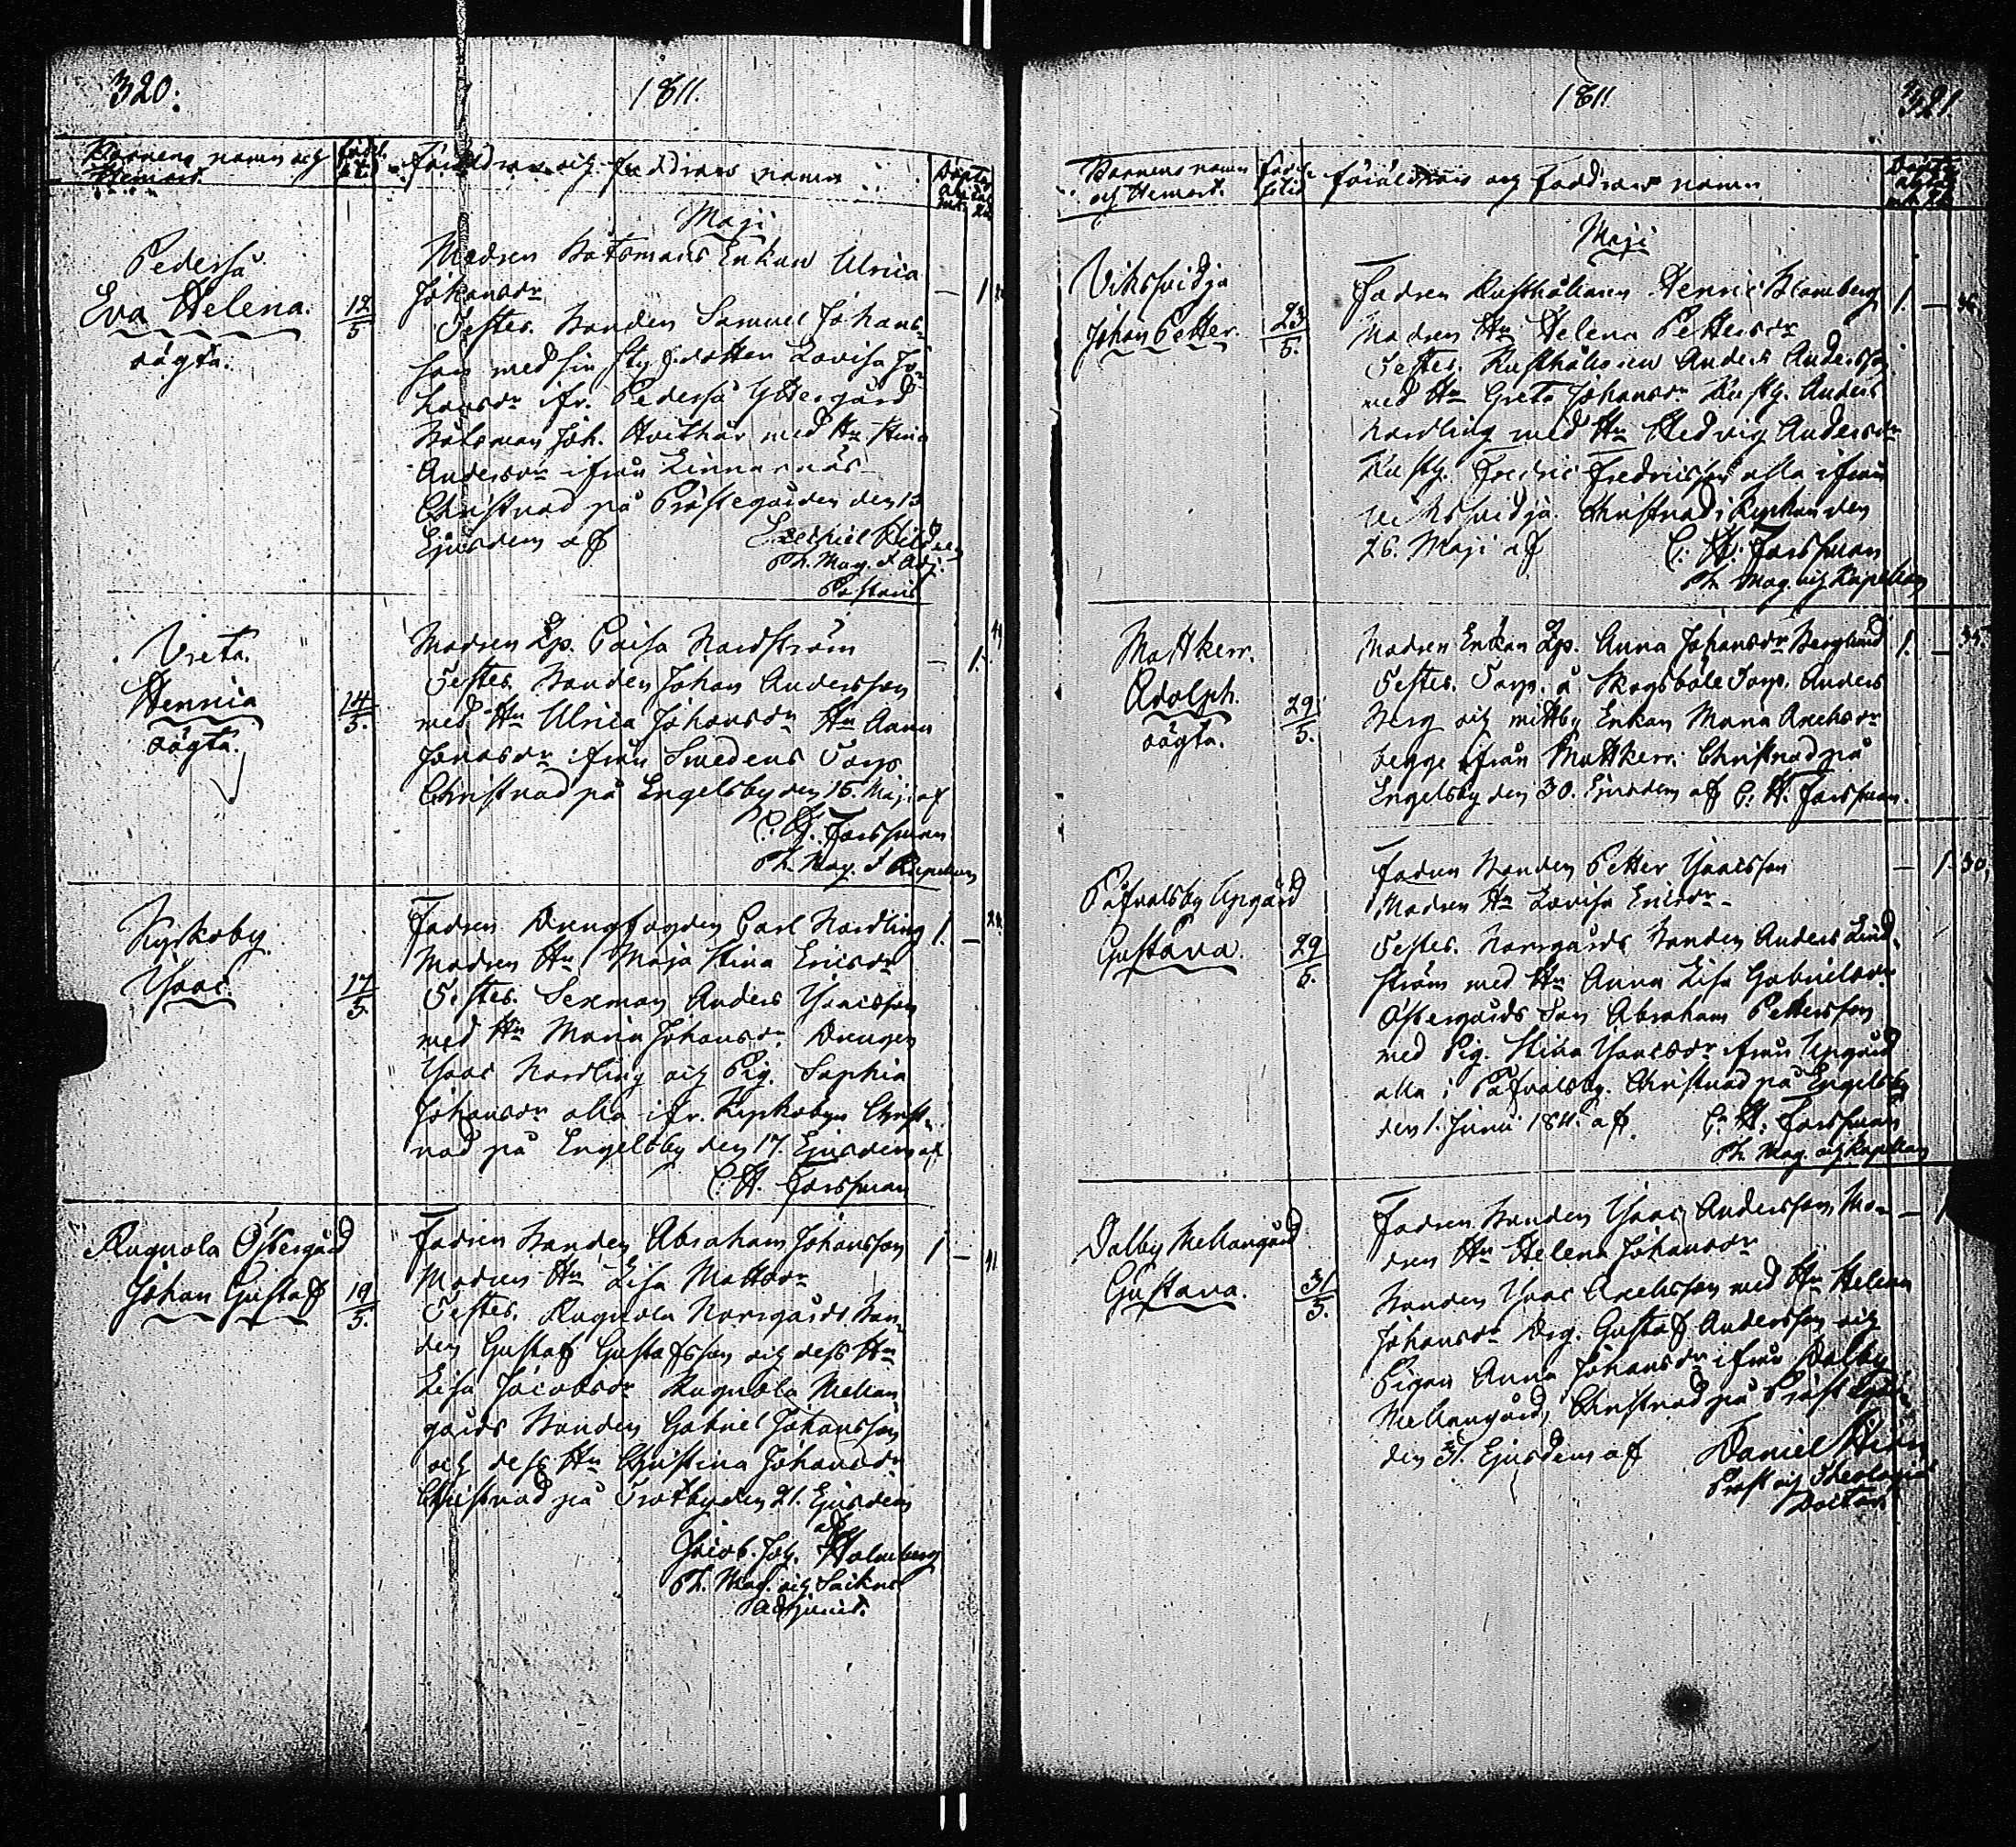 320.
1811.
Barnens namn och Hemort.
födel. tid.
Föräldrars och faddrars namn
Maji
Pederså
Eva Helena.
oägta.
12/5
Modren Båtsmans Enkan Ulrica
Johansdr
Testes. Bonden Samuel Johans-
son med sin Styfdotter Lovisa Jo-
hansdr ifr. Pederså Yttergård
Båtsman Joh. Hvithår med Hu Stina
Andersdr ifrån Linnarnäs
Christnad på Prästegården den 13
Ejusdem af
Th. Mag. & Adj.
Pastoris
Vreta.
Hennia
oägta.
14/5.
Modren Lp. Caisa Nordström
Testes. Bonden Johan Andersson
med Hu Ulrica Johansdr Hu Anna
Jonasdr ifrån Smedens Torp
Christnad på Engelsby den 15. Maji af
C. H. Forssman
Th. Mag. & Kapellan
Kyrkoby
Ysaac
17/5.
Fadren Drengfogden Carl Nordling
Modren Hu Maja Stina Ericsdr
Testes. Sexman Anders Ysacsson
med Hu Maria Johansdr Drengen
Ysaac Nordling och Pig. Sophia
Johansdr alla ifr. Kyrkobyn Christ-
nad på Engelsby den 17. Ejusdem af
C. H. Forssman
Rugnola Östergård
Johan Gustaf
19/5.
Fadren Bonden Abraham Johansson
Modren Hu Lisa Mattsdr
Testes. Rugnola Norrgårds Bon-
den Gustaf Gustafsson och dess Hu
Lisa Jacobsdr Rugnola Mellan
gårds Bonden Gabriel Johansson
och dess Hu Christina Johansdr
Christnad på Trotby den 21. Ejusdem
af
Jacob. Joh. Holmberg
Th. Mag. och Sockne
Adjunct.
1811
321.
Barnens namn och Hemort.
födelsetid
föräldrars och faddrars namn
Maji
Viksvidja
Johan Petter.
23/5.
Fadren Rusthållaren Henric Blomberg
Modren Hu Helena Pettersdr
Testes. Rusthållaren Anders Andersson
med Hu Greta Johansdr Rusth. Anders
Nordling med Hu Hedvig Andersdr
Rusth. Fredric Fredricsson alla ifrån
Viksvidja. Christnad i Kyrkan den
26. Maji af C. H. Forssman
Th. Mag. och Kapellan
Mattkerr.
Adolph.
oägta.
29/5.
Modren Enkan Lp. Anna Johansdr Berglund
Testes. Torp. å Skogsböle Torp. Anders
Berg och Enkan Maria
begge ifrån Mattkerr. Christnad på
Engelsby den 30. Ejusdem af C. H. Forssman.
Påfvalsby Upgård
Gustava.
29/5.
Fadren Bonden Petter Ysacsson
Modren Hu Lovisa Ericsdr
Testes. Norrgårds Bonden Anders Lind-
ström med Hu Anna Lisa Gabrielsdr
Östergårds Son Abraham Pettersson
med Pig. Stina Ysacsdr ifrån Upgård
alla i Påfvalsby. Christnad på Engelsby
den 1. Junii 1811. af C. H. Forssman
Th. Mag. och Kapellan
Dalby Mellangård
Gustava.
31/5.
Fadren Bonden Ysaac Andersson, Mo-
dren Hu Helena Johansdr
Bonden Ysaac med Hu Helena
Johansdr Drg. Gustaf Andersson och
Pigan Anna Johansdr ifrån Dalby
Mellangård, Christnad på Prästegården
den 31. Ejusdem af Daniel
Prost och Theologiæ
Doctor.